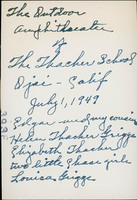 The Outdoor
Amphitheater
of
The Thacher School
Ojai - Calif
July 1, 1949
Edgar and my cousin
Helen Thacher Griggs
Elizabeth Thacher
two little Chase girls
Louisa Griggs